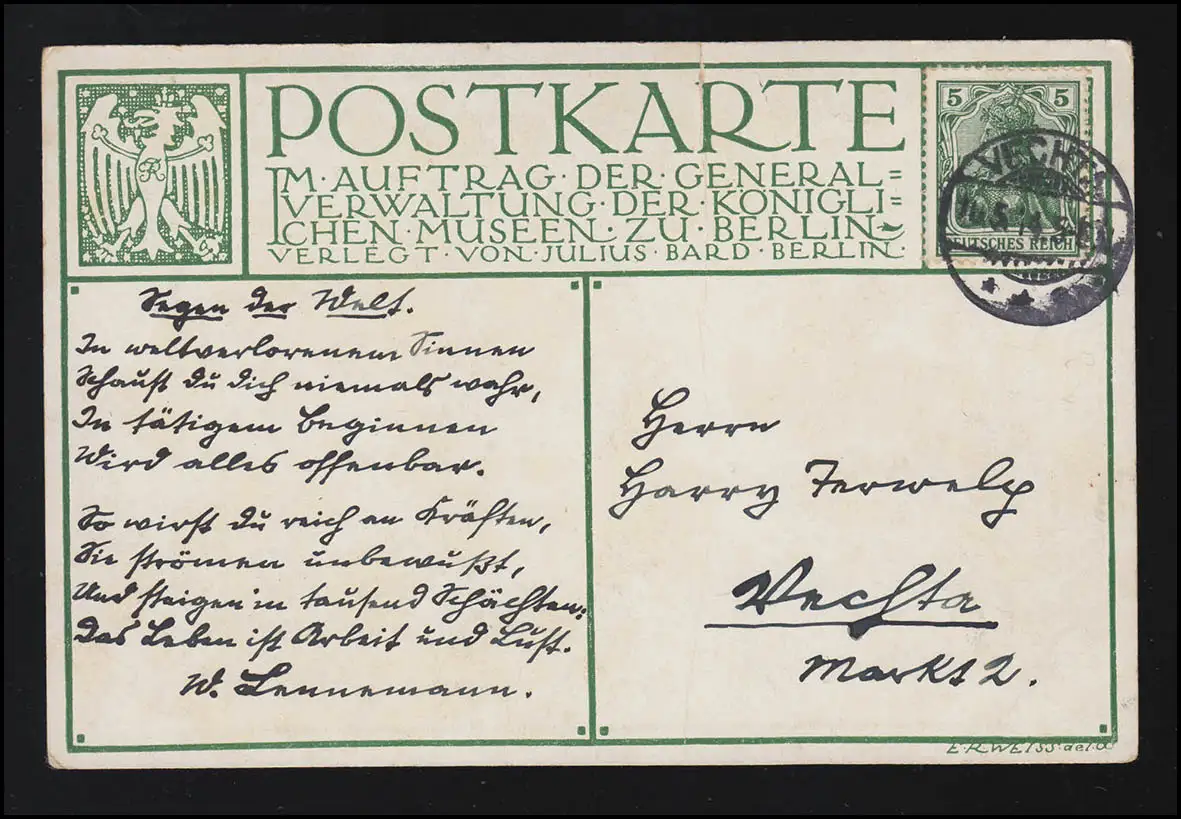 POSTKARTE
IM · AUFTRAG · DER · GENERAL=
VERWALTUNG · DER · KÖNIGLI=
CHEN · MUSEEN · ZU · BERLIN
VERLEGT · VON · JULIUS · BARD · BERLIN ·
5 5
DEUTSCHES REICH
VECHTA
Segen der Welt.
In weltverlorenem Sinnen
Schaust du dich niemals wahr,
In tätigem Beginnen
Wird alles offenbar.
So wirst du reich an Kräften,
Sie strömen unbewußt,
Und steigen in tausend Schächten:
Das Leben ist Arbeit und Lust.
W. Lennemann.
Herrn
Harry Terwelp
Vechta
Markt 2.
E·R·WEISS·del·